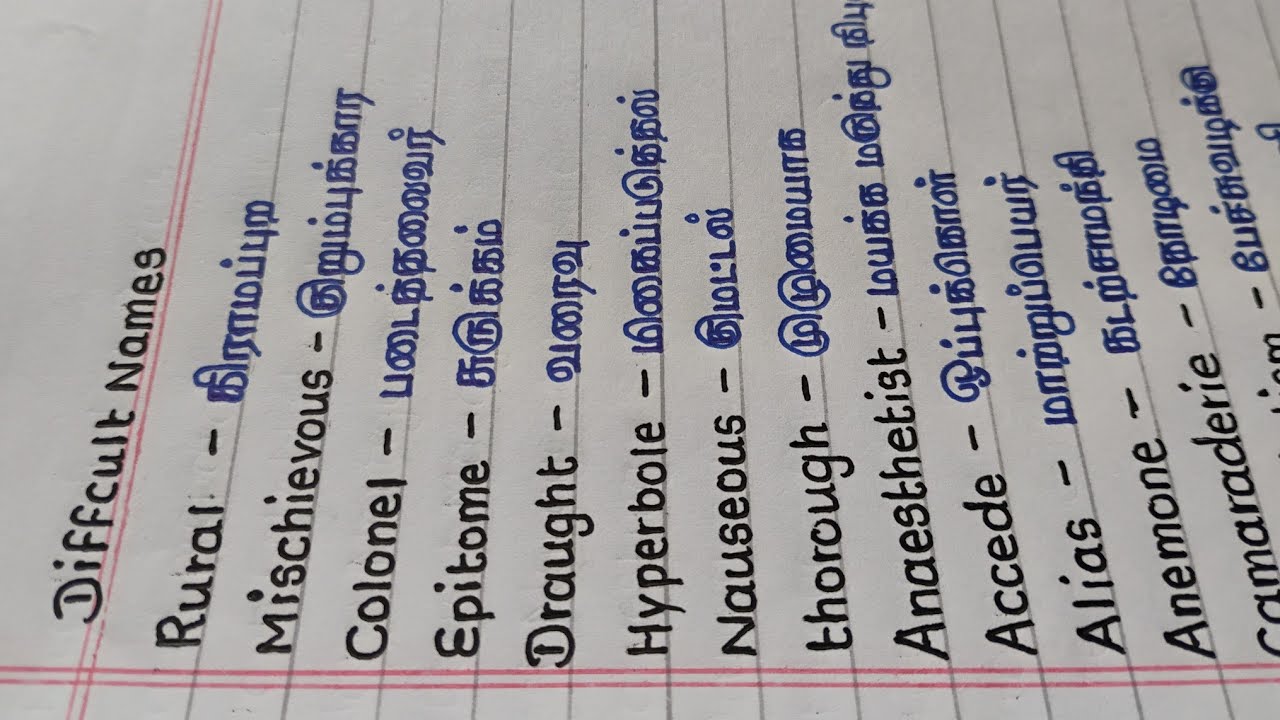 Diffcult Names
Rural - கிராமப்புற
Mischievous - குறும்புக்கார
Colonel - படைத்தலைவர்
Epitome - சுருக்கம்
Draught - வரைவு
Hyperbole - மிகைப்படுத்தல்
Nauseous - குமட்டல்
thorough - முழுமையாக
Anaesthetist - மயக்க மருந்து
Accede - ஒப்புக்கொள்
Alias - மாற்றுப்பெயர்
Anemone - கடற்சாமந்தி
Camarraderie - தோழமை
- பேச்சுவழக்கு